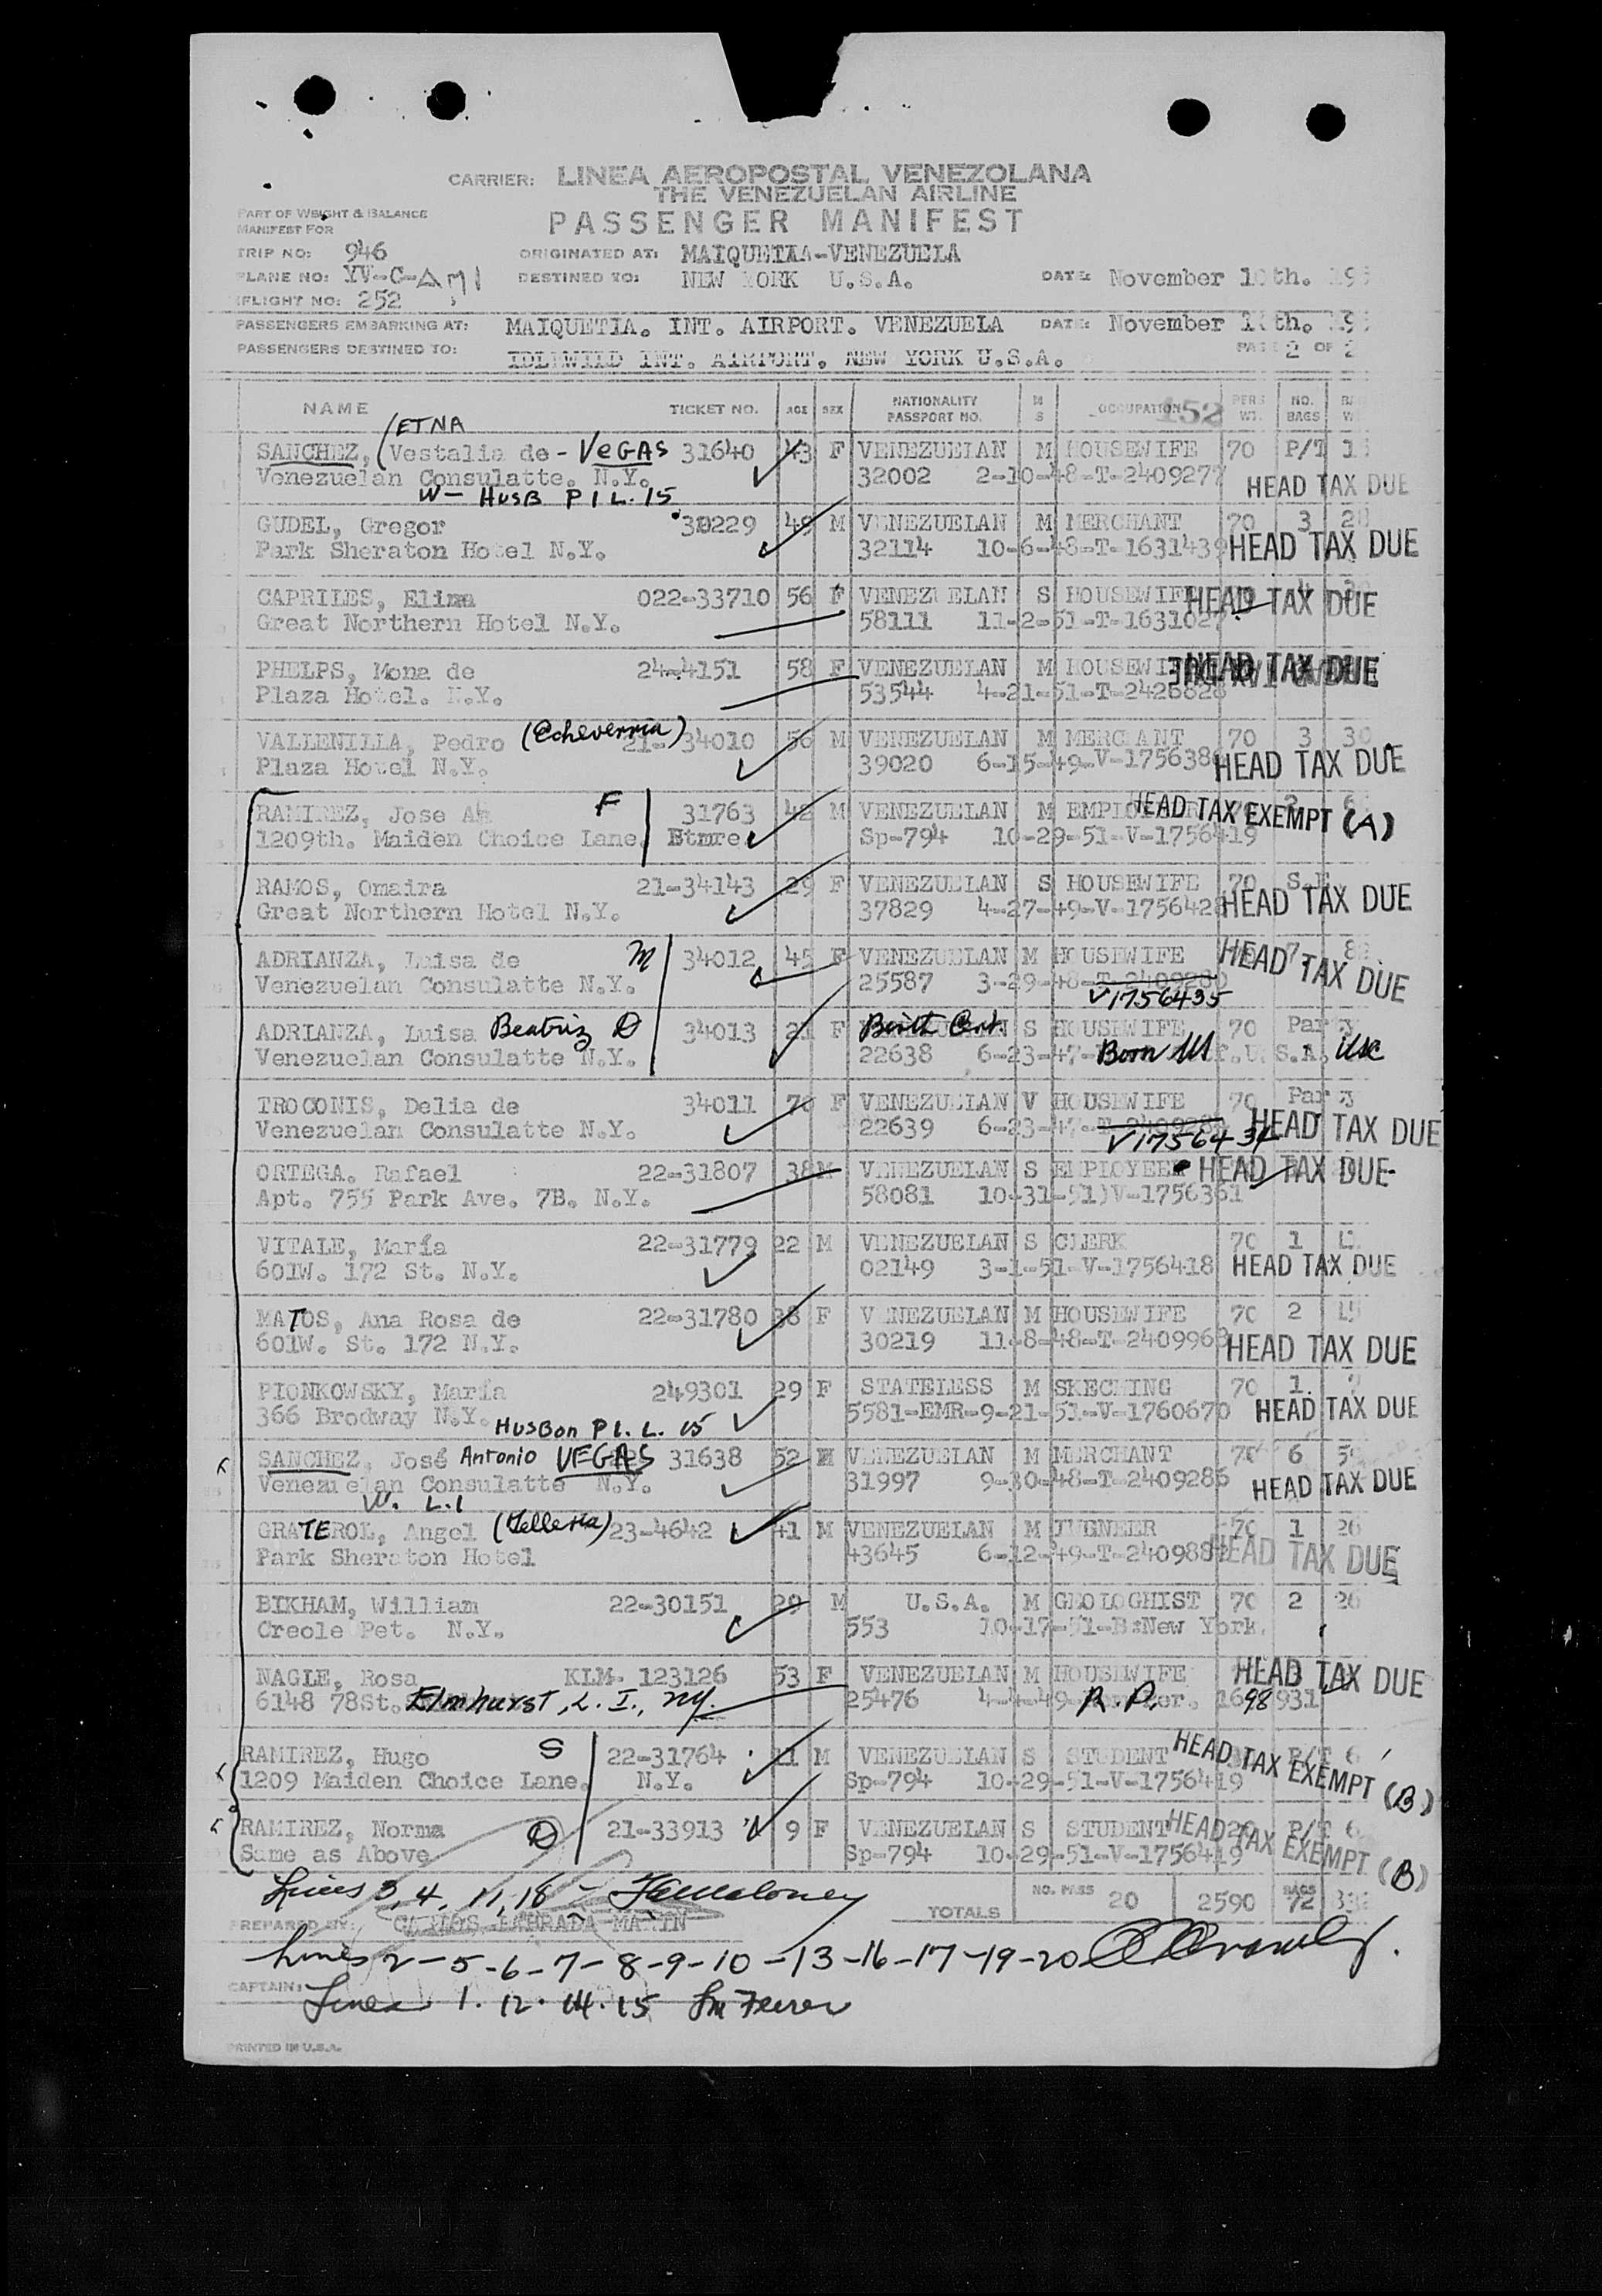 CARRIER: LINEA AEROPOSTAL VENEZOLANA
THE VENEZUELAN AIRLINE
PART OF WEIGHT & BALANCE
MANIFEST FOR
PASSENGER MANIFEST
TRIP NO: 946 ORIGINATED AT: MAIQUETIA-VENEZUELA
PLANE NO: YV-C-AMI DESTINED TO: NEW YORK U.S.A. DATE: November 10th. 195
FLIGHT NO: 252
PASSENGERS EMBARKING AT: MAIQUETIA. INT. AIRPORT. VENEZUELA DATE: November 10th. 195
PASSENGERS DESTINED TO: IDLEWILD INT. AIRPORT. NEW YORK U.S.A. PAGE 2 OF 2
NAME TICKET NO. AGE SEX NATIONALITY PASSPORT NO. M S OCCUPATION 152 PERS WT. NO. BAGS
ETNA
SANCHEZ, (Vestalia de - VEGAS 31640 43 F VENEZUELAN M HOUSEWIFE 70 P/T
Venezuelan Consulatte. N.Y. 32002 2-10-48-T-2409277 HEAD TAX DUE
W - HUSB P I L. 15
GUDEL, Gregor 30229 49 M VENEZUELAN M MERCHANT 70 3 28
Park Sheraton Hotel N.Y. 32114 10-6-48-T-1631439 HEAD TAX DUE
CAPRILES, Elina 022-33710 56 F VENEZUELAN S HOUSEWIFE HEAD TAX DUE
Great Northern Hotel N.Y. 58111 11-2-51-T-1631027
PHELPS, Mona de 24-4151 58 F VENEZUELAN M HOUSEWIFE HEAD TAX DUE
Plaza Hotel. N.Y. 53544 4-21-51-T-2426828
VALLENILLA, Pedro (Echeverria) 21-34010 56 M VENEZUELAN M MERCHANT 70 3 30
Plaza Hotel N.Y. 39020 6-15-49-V-175638 HEAD TAX DUE
RAMIREZ, Jose F 31763 42 M VENEZUELAN M HEAD TAX EXEMPT (A)
1209th. Maiden Choice Lane. Btmre. Sp-794 10-29-51-V-1756419
RAMOS, Omaira 21-34143 29 F VENEZUELAN S HOUSEWIFE 70
Great Northern Hotel N.Y. 37829 4-27-49-V-1756428 HEAD TAX DUE
ADRIANZA, Luisa de M 34012 45 F VENEZUELAN M HOUSEWIFE 7 HEAD TAX DUE
Venezuelan Consulatte N.Y. 25587 3-29-48-T-2409280
V1756435
ADRIANZA, Luisa Beatriz D 34013 21 F Birth Cert. S HOUSEWIFE 70 Party
Venezuelan Consulatte N.Y. 22638 6-23-47- Born U.S.A. USC
TROCONIS, Delia de 34011 70 F VENEZUELAN V HOUSEWIFE 70 Party
Venezuelan Consulatte N.Y. 22639 6-23-47- HEAD TAX DUE
V1756434
ORTEGA. Rafael 22-31807 38 M VENEZUELAN S EMPLOYEE HEAD TAX DUE
Apt. 755 Park Ave. 7B. N.Y. 58081 10-31-51)V-1756361
VITALE, María 22-31779 22 M VENEZUELAN S CLERK 70 1
601W. 172 St. N.Y. 02149 3-1-51-V-1756418 HEAD TAX DUE
MATOS, Ana Rosa de 22-31780 38 F VENEZUELAN M HOUSEWIFE 70 2
601W. St. 172 N.Y. 30219 11-8-48-T-2409968 HEAD TAX DUE
PIONKOWSKY, María 249301 29 F STATELESS M SKECHING 70 1
366 Brodway N.Y. 5581-EMR-9-21-51-V-1760670 HEAD TAX DUE
HUSBON P1. L. 15
SANCHEZ, José Antonio VEGAS 31638 52 M VENEZUELAN M MERCHANT 70 6
Venezuelan Consulatte N.Y. 31997 9-30-48-T-2409286 HEAD TAX DUE
W. L.1
GRATEROL, Angel (Telleria) 23-4642 41 M VENEZUELAN M 70 1 26
Park Sheraton Hotel 43645 6-12-49-T-240988 HEAD TAX DUE
BIKHAM, William 22-30151 29 M U.S.A. M GEOLOGHIST 70 2 26
Creole Pet. N.Y. 553 10-17-51-B:New York.
NAGLE, Rosa KLM- 123126 53 F VENEZUELAN M HOUSEWIFE HEAD TAX DUE
6148 78St. Elmhurst, L. I., NY. 25476 4-4-49 R P. 1698931
RAMIREZ, Hugo S 22-31764 11 M VENEZUELAN S STUDENT P/T 6
1209 Maiden Choice Lane. N.Y. Sp-794 10-29-51-V-1756419 HEAD TAX EXEMPT (B)
RAMIREZ, Norma D 21-33913 9 F VENEZUELAN S STUDENT 20 P/T 6
Same as Above Sp-794 10-29-51-V-1756419 HEAD TAX EXEMPT (B)
Lines 3, 4, 11, 18 -
TOTALS NO. PASS 20 2590 BAGS 72
PREPARED BY:
Lines 2-5-6-7-8-9-10-13-16-17-19-20
CAPTAIN:
Lines 1. 12. 14. 15
PRINTED IN U.S.A.